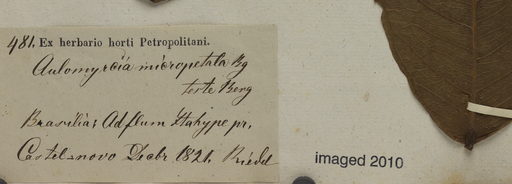 481. Ex herbario horti Petropolitani.
Aulomyrcia micropetala Bg
teste Berg
Brasilia; Ad flum Itahype pr.
Castelnovo Decbr 1821. Riedel
imaged 2010